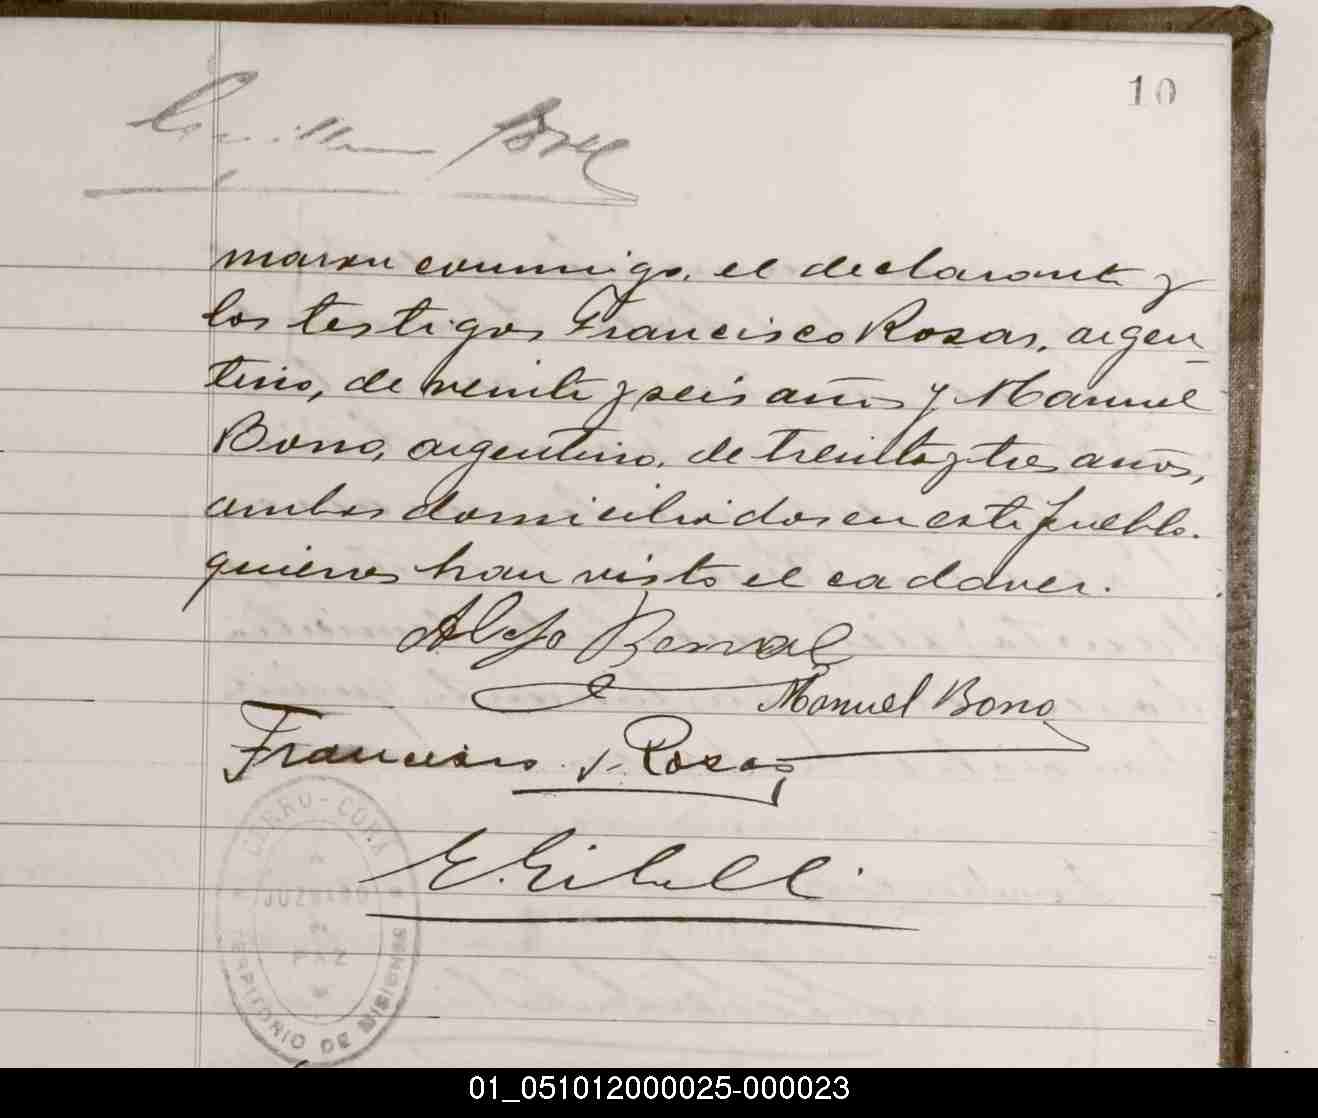 10
Guillermo
maron conmigo, el declarante y
los testigos Francisco Rosas, argen_
tino, de veinte y seis años y Manuel
Bono, argentino, de treinta y tres años,
ambos domiciliados en este pueblo.
quienes han visto el cadaver.
Alejo Bernal
Manuel Bono
Francisco J. Rosas
E. Gibelli
CERRO-CORA
JUZGADO
DE
PAZ
TERRITORIO DE MISIONES
01_051012000025-000023